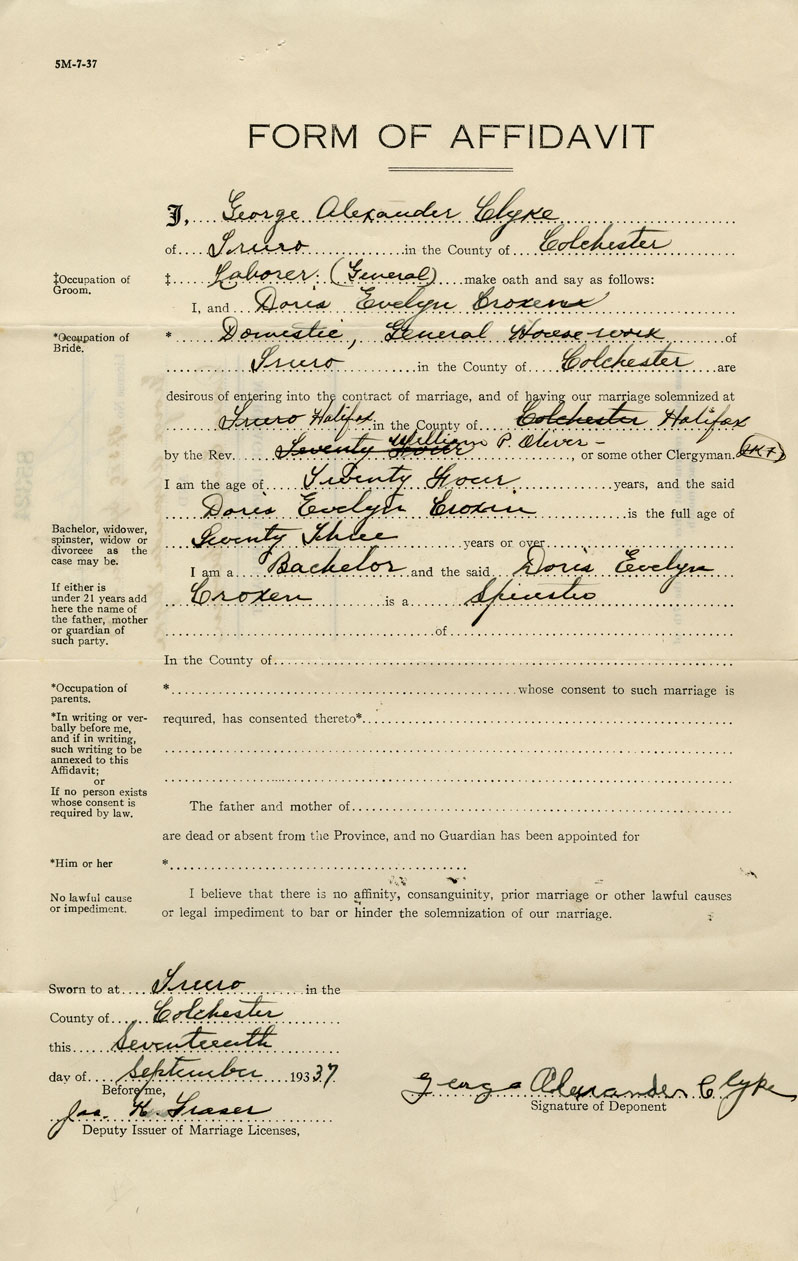 5M-7-37
FORM OF AFFIDAVIT
I, George Alexander Clyke
of Truro in the County of Colchester
‡Occupation of Groom.
‡ Laborer. (General) make oath and say as follows:
I, and Doris Evelyn Croxen
*Occupation of Bride.
* Domestic, General House-work of
Truro in the County of Colchester are
desirous of entering into the contract of marriage, and of having our marriage solemnized at
Truro Halifax in the County of Colchester Halifax
by the Rev. William P. Oliver- , or some other Clergyman. (JKF)
I am the age of Twenty Four years, and the said
Doris Evelyn Croxen is the full age of
Twenty Three years or over
Bachelor, widower,
spinster, widow or
divorcee as the
case may be.
I am a Bachelor and the said Doris Evelyn
Croxen is a Spinster
If either is
under 21 years add
here the name of
the father, mother
or guardian of
such party.
of
In the County of
*Occupation of
parents.
* whose consent to such marriage is
*In writing or ver-
bally before me,
and if in writing,
such writing to be
annexed to this
Affidavit;
or
If no person exists
whose consent is
required by law.
required, has consented thereto*
The father and mother of
are dead or absent from the Province, and no Guardian has been appointed for
*Him or her
*
No lawful cause
or impediment.
I believe that there is no affinity, consanguinity, prior marriage or other lawful causes
or legal impediment to bar or hinder the solemnization of our marriage.
Sworn to at Truro in the
County of Colchester
this Seventeenth
day of September 193 37
Before me,
Jas. K. Fraser
Deputy Issuer of Marriage Licenses,
George Alexander Clyke
Signature of Deponent